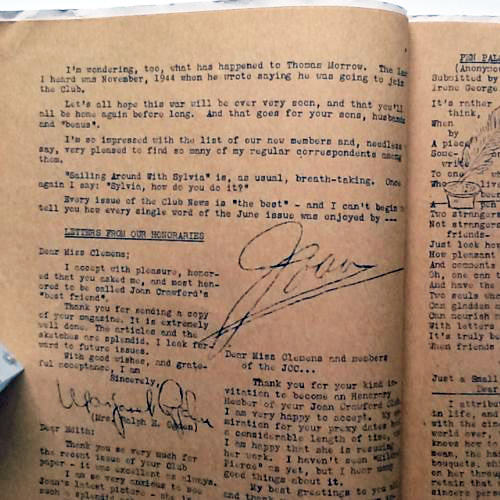 I'm wondering, too, what has happened to Thomas Morrow. The
I heard was November, 1944 when he wrote saying he was going to join
the Club.
Let's all hope this war will be over very soon, and that you'll
all be home again before long. And that goes for your sons, husbands
and "beaus".
I'm so impressed with the list of our new members and, needless
say, very pleased to find so many of my regular correspondents among
them.
"Sailing Around With Sylvia" is, as usual, breath-taking. Once
again I say: "Sylvia, how do you do it?"
Every issue of the Club News is "the best" - and I can't begin
tell you how every single word of the June issue was enjoyed by ---
Joan
LETTERS FROM OUR HONORARIES
Dear Miss Clemens;
I accept with pleasure, honor-
ed that you asked me, and most hon-
ored to be called Joan Crawford's
"best friend".
Thank you for sending a copy
of your magazine. It is extremely
well done. The articles and the
sketches are splendid. I look for-
ward to future issues.
With good wishes, and grate-
ful acceptance, I am
Sincerely,
(Mrs. Ralph E.
Dear Edith:
Thank you so very much for
the recent issue of your Club
paper - it was excellent as always.
I am so very anxious to see
Joan's latest picture - she is
such a splendid
Dear Miss Clemens and members
of the JCC...
Thank you for your kind in-
vitation to become an Honorary
Member of your Joan Crawford Club.
I am very happy to accept. My
miration for your proxy dates
considerable length of time,
I am happy that she is resuming
her work. I haven't seen
Pierce" as yet, but I hear many
good things about it.
My best greetings to you
and thank
PEN PALS
(Anonymous
Submitted by
Irene George
It's rather
think,
When
by
A piece
Some-
write
To one
Who
A pen
Two strangers
Not strangers
friends-
Just look how
How pleasant
And comments
Oh, one can
And have the
Two souls
Can gladden
Can nourish
With letters
It's truly
When friends
Just a Small
Dear
I attribute
in life, and
with the
world over,
knows how to
mean, the
bouquets,
on her
retain that
sincere